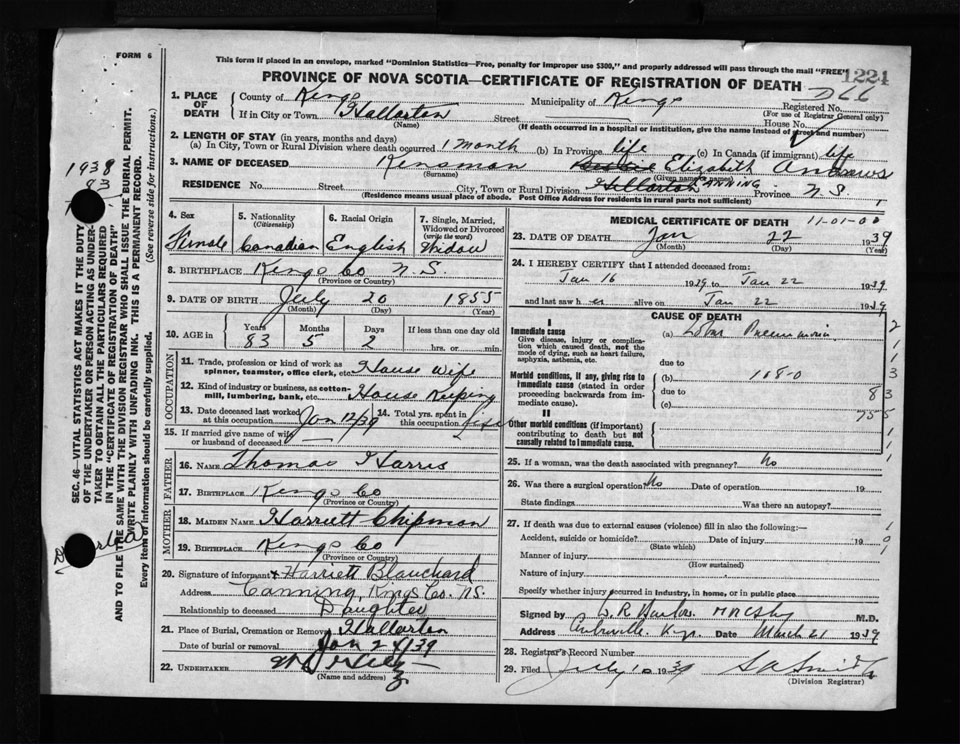 FORM 6
This form if placed in an envelope, marked "Dominion Statistics—Free, penalty for improper use $300," and properly addressed will pass through the mail "FREE"
1224
PROVINCE OF NOVA SCOTIA—CERTIFICATE OF REGISTRATION OF DEATH
1. PLACE OF DEATH
County of Kings Municipality of Kings Registered No.
If in City or Town Street House No. (For use of Registrar General only)
(Name) (If death occurred in a hospital or institution, give the name instead of street and number)
2. LENGTH OF STAY (in years, months and days)
(a) In City, Town or Rural Division where death occurred 1 month (b) In Province life (c) In Canada (if immigrant) life
3. NAME OF DECEASED Kinsman Elizabeth Andrews
(Surname) (Given names)
RESIDENCE No. Street City, Town or Rural Division CANNING Province N.S.
(Residence means usual place of abode. Post Office Address for residents in rural parts not sufficient)
4. Sex Female
5. Nationality (Citizenship) Canadian
6. Racial Origin English
7. Single, Married, Widowed or Divorced (write the word) Widow
8. BIRTHPLACE Kings Co N.S.
(Province or Country)
9. DATE OF BIRTH July 20 1855
(Month) (Day) (Year)
10. AGE in Years Months Days If less than one day old
83 5 2 hrs. or min.
OCCUPATION
11. Trade, profession or kind of work as spinner, teamster, office clerk, etc. House Wife
12. Kind of industry or business, as cotton-mill, lumbering, bank, etc. House Keeping
13. Date deceased last worked at this occupation Jan 12/39
14. Total yrs. spent in this occupation life
15. If married give name of wife or husband of deceased
FATHER
16. NAME Thomas Harris
17. BIRTHPLACE Kings Co
(Province or Country)
MOTHER
18. MAIDEN NAME Harriett Chipman
19. BIRTHPLACE Kings Co
(Province or Country)
20. Signature of informant x Harriett Blanchard
Address Canning, Kings Co. N.S.
Relationship to deceased Daughter
21. Place of Burial, Cremation or Removal
Date of burial or removal Jan 24/39
22. UNDERTAKER
(Name and address)
MEDICAL CERTIFICATE OF DEATH 11-01-00
23. DATE OF DEATH Jan 22 1939
(Month) (Day) (Year)
24. I HEREBY CERTIFY that I attended deceased from:
Jan 16 1939 to Jan 22 1939
and last saw her alive on Jan 22 1939
CAUSE OF DEATH
I
Immediate cause
Give disease, injury or complication which caused death, not the mode of dying, such as heart failure, asphyxia, asthenia, etc.
(a) Lobar Pneumonia
due to
Morbid conditions, if any, giving rise to immediate cause (stated in order proceeding backwards from immediate cause).
(b) 108-0
due to
(c)
II
Other morbid conditions (if important) contributing to death but not causally related to immediate cause.
25. If a woman, was the death associated with pregnancy? No
26. Was there a surgical operation? No Date of operation 19
State findings Was there an autopsy?
27. If death was due to external causes (violence) fill in also the following:—
Accident, suicide or homicide? Date of injury 19
(State which)
Manner of injury
(How sustained)
Nature of injury
Specify whether injury occurred in industry, in home, or in public place
Signed by M.D.
Address Date March 21 1939
28. Registrar's Record Number
29. Filed July 10 1939 S A Smith
(Division Registrar)
SEC. 46—VITAL STATISTICS ACT MAKES IT THE DUTY
OF THE UNDERTAKER OR PERSON ACTING AS UNDERTAKER
TO OBTAIN ALL THE PARTICULARS REQUIRED
IN THE "CERTIFICATE OF REGISTRATION OF DEATH"
AND TO FILE THE SAME WITH THE DIVISION REGISTRAR WHO SHALL ISSUE THE BURIAL PERMIT.
WRITE PLAINLY WITH UNFADING INK. THIS IS A PERMANENT RECORD.
Every item of information should be carefully supplied. (See reverse side for instructions.)
1938
83